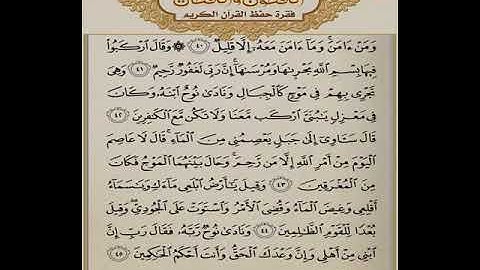 فقرة حفظ القرآن الكريم
وَمَنْ ءَامَنَ وَمَآ ءَامَنَ مَعَهُۥٓ إِلَّا قَلِيلٌ ٤٠ ۞ وَقَالَ ٱرْكَبُوا۟
فِيهَا بِسْمِ ٱللَّهِ مَجْر۪ىٰهَا وَمُرْسَىٰهَآ إِنَّ رَبِّى لَغَفُورٌ رَّحِيمٌ ٤١ وَهِىَ
تَجْرِى بِهِمْ فِى مَوْجٍ كَٱلْجِبَالِ وَنَادَىٰ نُوحٌ ٱبْنَهُۥ وَكَانَ
فِى مَعْزِلٍ يَٰبُنَىَّ ٱرْكَب مَّعَنَا وَلَا تَكُن مَّعَ ٱلْكَٰفِرِينَ ٤٢
قَالَ سَـَٔاوِىٓ إِلَىٰ جَبَلٍ يَعْصِمُنِى مِنَ ٱلْمَآءِ قَالَ لَا عَاصِمَ
ٱلْيَوْمَ مِنْ أَمْرِ ٱللَّهِ إِلَّا مَن رَّحِمَ وَحَالَ بَيْنَهُمَا ٱلْمَوْجُ فَكَانَ
مِنَ ٱلْمُغْرَقِينَ ٤٣ وَقِيلَ يَٰٓأَرْضُ ٱبْلَعِى مَآءَكِ وَيَٰسَمَآءُ
أَقْلِعِى وَغِيضَ ٱلْمَآءُ وَقُضِىَ ٱلْأَمْرُ وَٱسْتَوَتْ عَلَى ٱلْجُودِىِّ وَقِيلَ
بُعْدًا لِّلْقَوْمِ ٱلظَّٰلِمِينَ ٤٤ وَنَادَىٰ نُوحٌ رَّبَّهُۥ فَقَالَ رَبِّ إِنَّ
ٱبْنِى مِنْ أَهْلِى وَإِنَّ وَعْدَكَ ٱلْحَقُّ وَأَنتَ أَحْكَمُ ٱلْحَٰكِمِينَ ٤٥